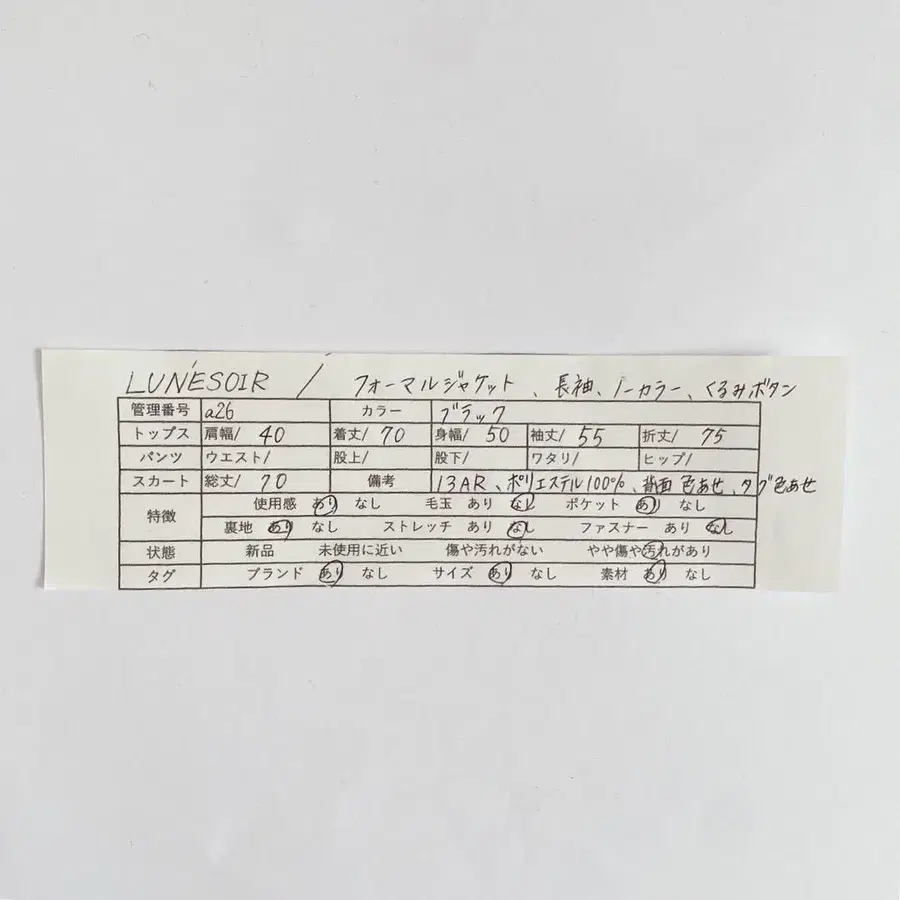 LUN'ESOIR / フォーマルジャケット、長袖、ノーカラー、くるみボタン
管理番号 a26 カラー ブラック
トップス 肩幅/ 40 着丈/ 70 身幅/ 50 袖丈/ 55 折丈/ 75
パンツ ウエスト/ 股上/ 股下/ ワタリ/ ヒップ/
スカート 総丈/ 70 備考 13AR、ポリエステル100%、背面色あせ、タグ色あせ
特徴 使用感 あり なし 毛玉 あり なし ポケット あり なし
裏地 あり なし ストレッチ あり なし ファスナー あり なし
状態 新品 未使用に近い 傷や汚れがない やや傷や汚れがあり
タグ ブランド あり なし サイズ あり なし 素材 あり なし